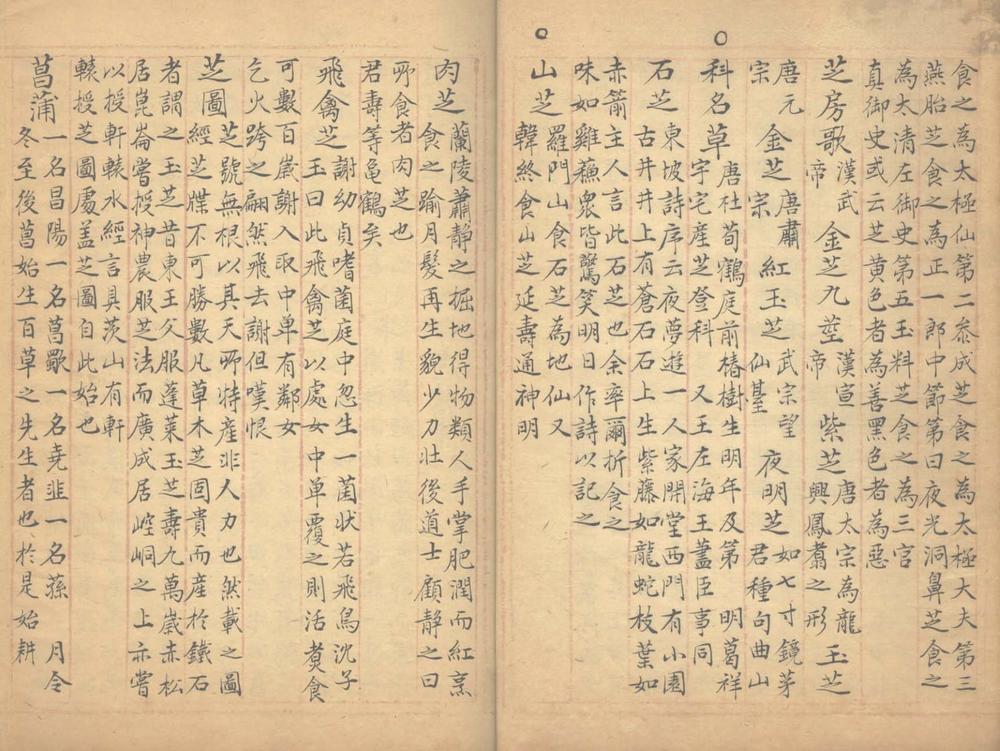 食之為太極仙第二泰成芝食之為太極大夫第三
燕胎芝食之為正一郎中節第曰夜光洞鼻芝食之
為太清左御史第五玉料芝食之為三宮
真御史或云芝黄色者為善黑色者為惡
芝房歌 漢武帝 金芝九莖 漢宣帝 紫芝 唐太宗為龍興鳳翥之形 玉芝
唐元宗 金芝 唐肅宗 紅玉芝 武宗望仙臺 夜明芝 如七寸鏡茅君種句曲山
科名草 唐杜荀鶴庭前椿樹生明年及第 明葛祥
宇宅産芝登科 又王左海王藎臣事同
石芝 東坡詩序云夜夢遊一人家開堂西門有小園
古井井上有蒼石石上生紫藤如龍蛇枝葉如
赤箭主人言此石芝也余率爾折食之
味如雞蘇衆皆驚笑明日作詩以記之
山芝 羅門山食石芝為地仙又
韓終食山芝延壽通神明
肉芝 蘭陵蕭靜之掘地得物類人手掌肥潤而紅烹
食之踰月髮再生貌少力壮後道士顧靜之曰
所食者肉芝也
君壽等龜鶴矣
飛禽芝 謝幼貞嗜菌庭中忽生一菌狀若飛鳥沈子
玉曰此飛禽芝以處女中单覆之則活煑食
可數百歳謝入取中单有鄰女
乞火跨之翩然飛去謝但嘆恨
芝圖 芝號無根以其天所特産非人力也然載之圖
經芝牒不可勝數凡草木芝固貴而産於鐵石
者謂之玉芝昔東王父服蓬莱玉芝壽九萬歳赤松
居崑崙嘗授神農服芝法而廣成居崆峒之上亦嘗
以授軒轅水經言具茨山有軒
轅授芝圖處盖芝圖自此始也
菖蒲 一名昌陽一名菖歜一名堯韭一名蓀 月令
冬至後菖始生百草之先生者也於是始耕